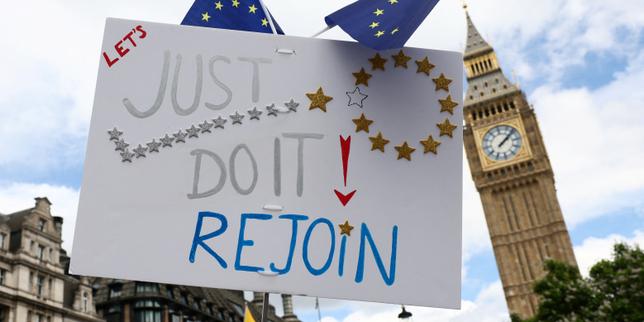 LET'S
JUST
DO IT!
REJOiN